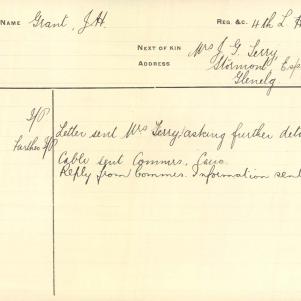 NAME Grant, J.H. REG. &C. 4th L H
NEXT OF KIN Mrs J. G. Terry,
ADDRESS Stormont, Esp
Glenelg
S/P Letter sent Mrs Terry, asking further det
Further S/P
Cable sent Commrs,
Reply from Commrs. Information sent